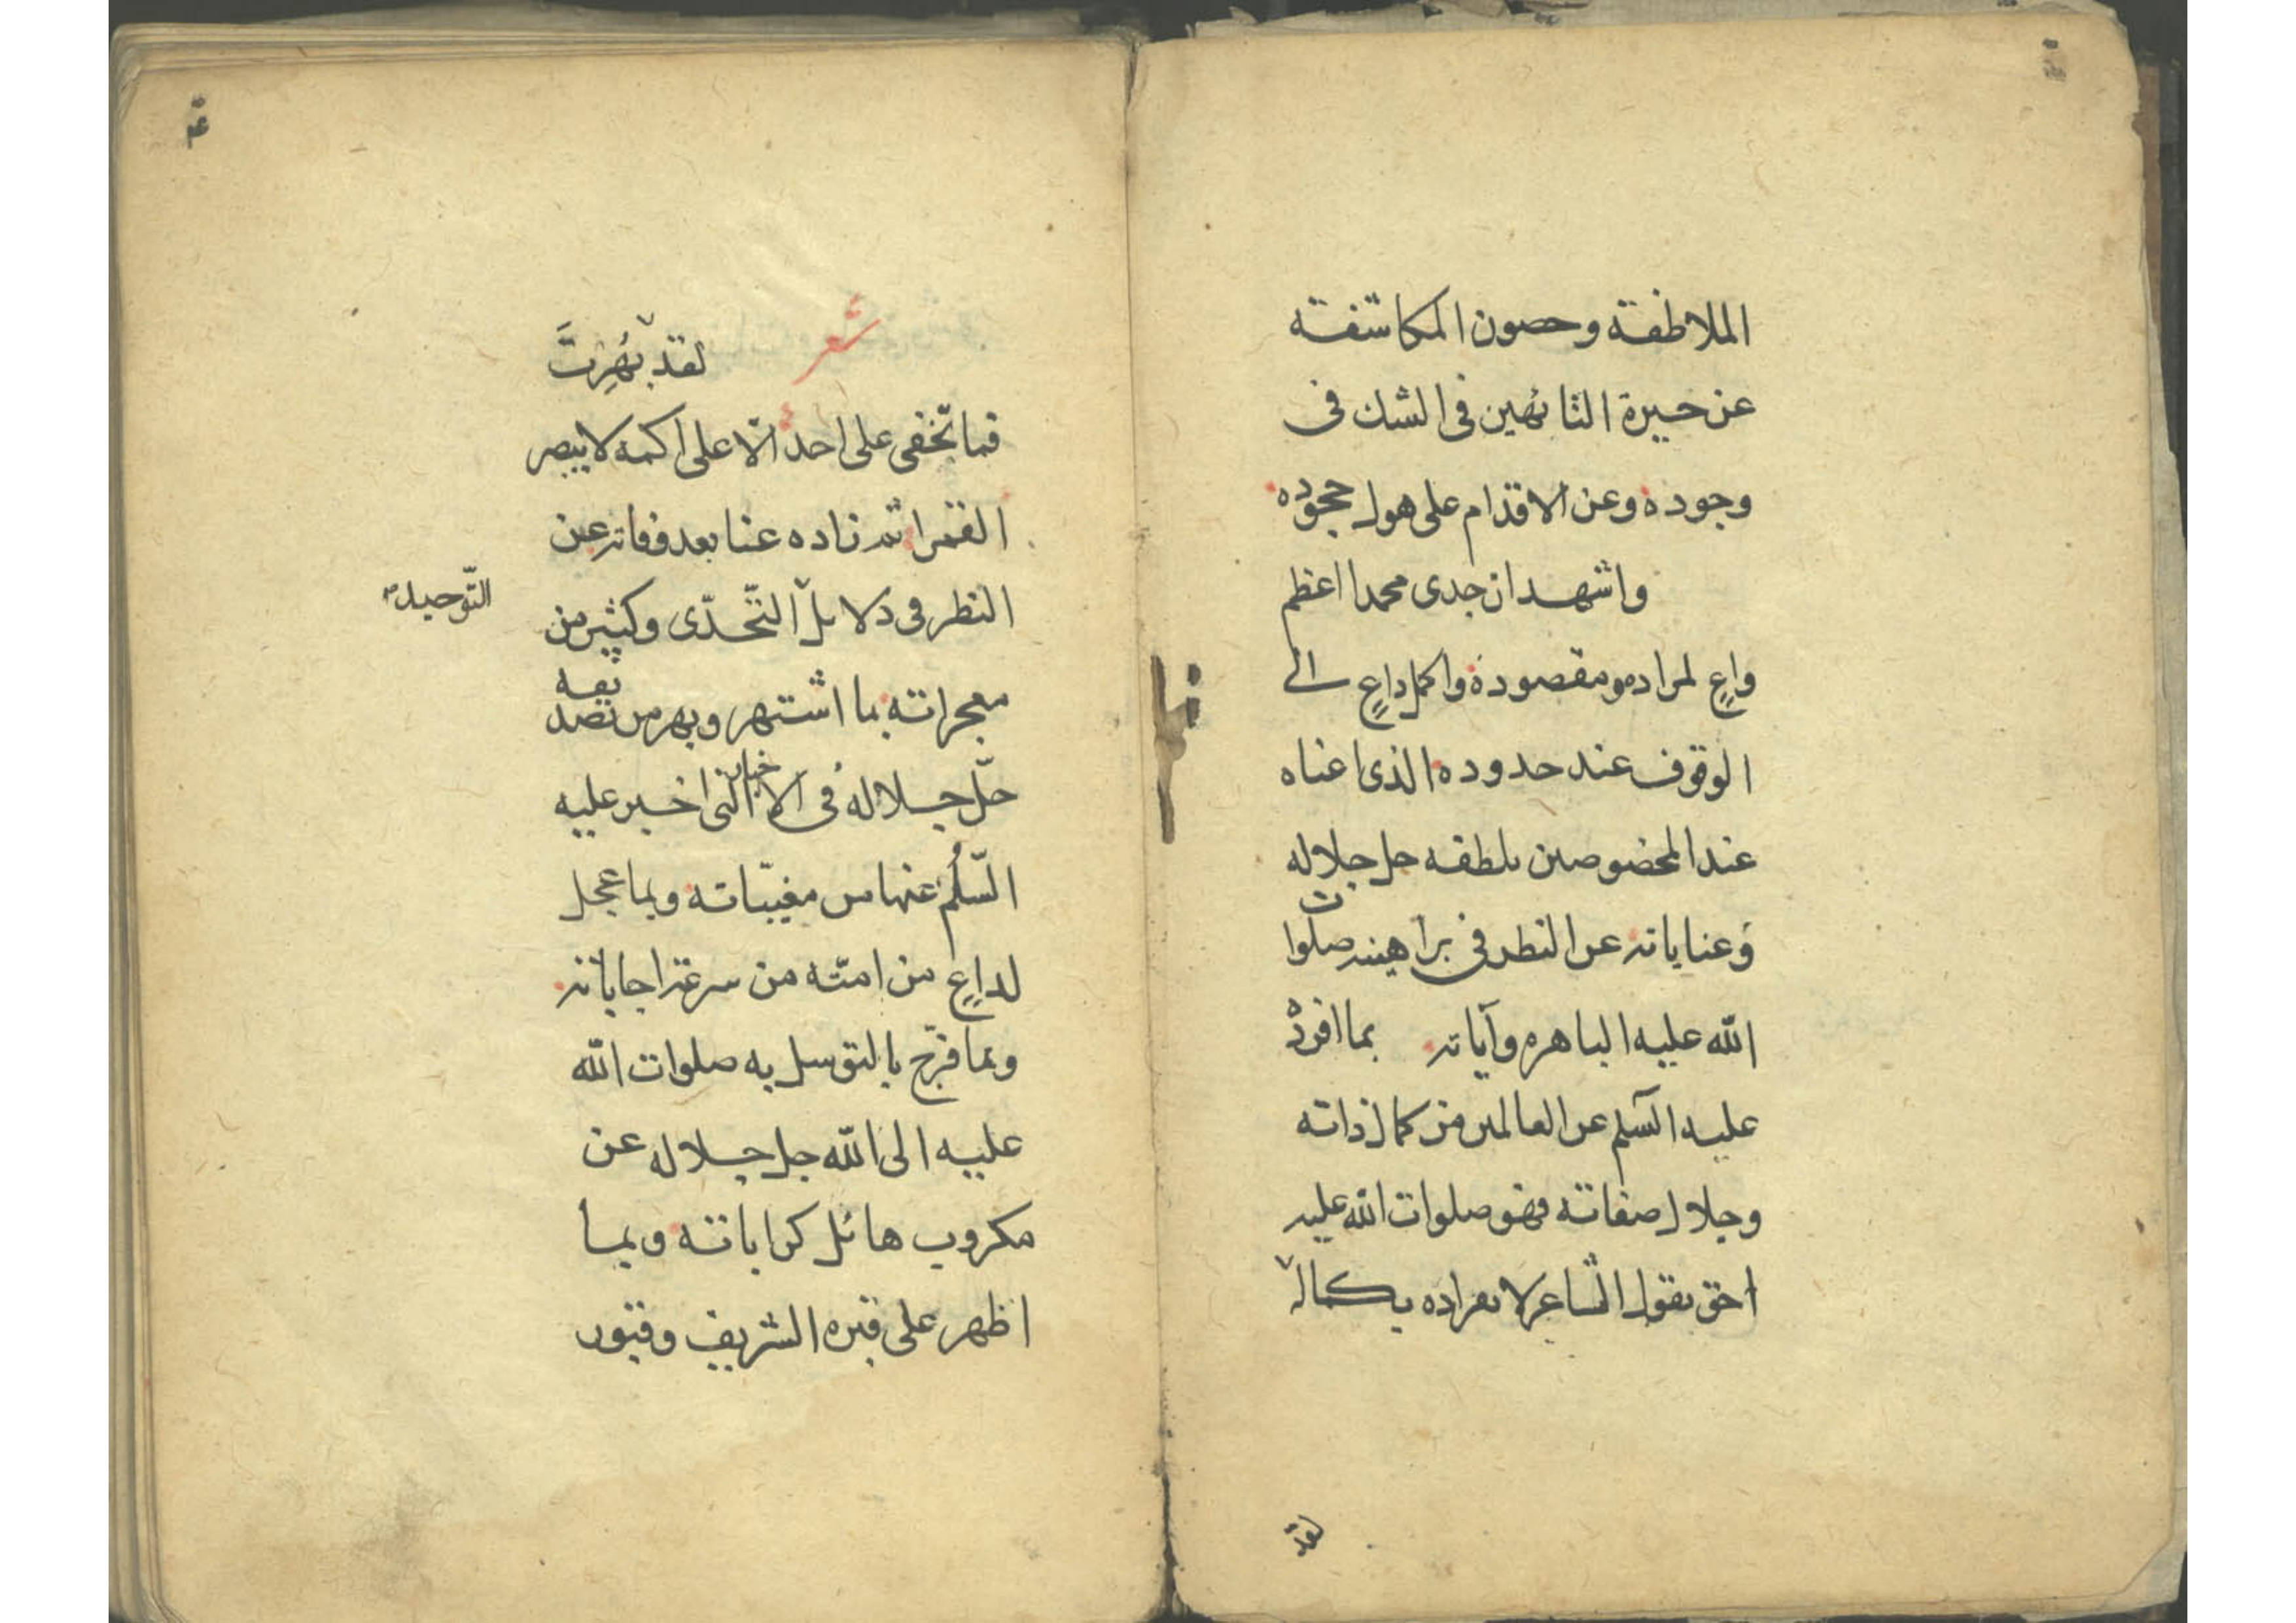 الملاطفة وحصون المكاشفة
عن حيرة التائهين فى الشك فى
وجوده وعن الاقدام على هول جحوده
واشهد ان جدى محمدا اعظم
واعٍ لمراده ومقصوده واكمل داعٍ الى
الوقوف عند حدوده الذى اغناه
عند المخصوصين بلطفه جل جلاله
وعناياته عن النظر فى براهينه صلوات
الله عليه الباهره وآياته بما افرده
عليه السّلم عن العالمين من كمال ذاته
وجلال صفاته فهو صلوات الله عليه
احق بقول الشاعر لانفراده بكماله
لقد
شعر
لقد بَهُرتَ
فما تخفى على احد الّا على اكمه لا يبصر
القمرا
عنا بعد وفاته عن
النظر فى دلايل التّحدّى وكثير من
التّوحيد
معجزاته بما اشتهر وبهر من تصديقه
جلّ جلاله فى الاخبار التى اخبر عليه
السّلم عنها من مغيّباته وبما عجل
لداعٍ من امته من سرعة اجاباته
وبما فرّج بالتوسل به صلوات الله
عليه الى الله جل جلاله عن
مكروب هائل كراباته وبما
اظهر على قبره الشريف وقبور